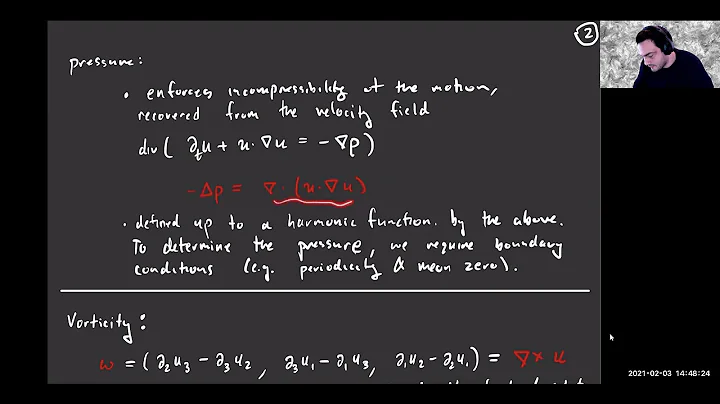 ②
pressure:
• enforces incompressibility of the motion,
recovered from the velocity field
div( ∂ₜu + u·∇u = -∇p )
-Δp = ∇·(u·∇u)
• defined up to a harmonic function. by the above.
To determine the pressure, we require boundary
conditions (e.g. periodicity & mean zero).
Vorticity:
ω = (∂₂u₃ - ∂₃u₂, ∂₃u₁ - ∂₁u₃, ∂₁u₂ - ∂₂u₁) = ∇× u
2021-02-03 14:48:24